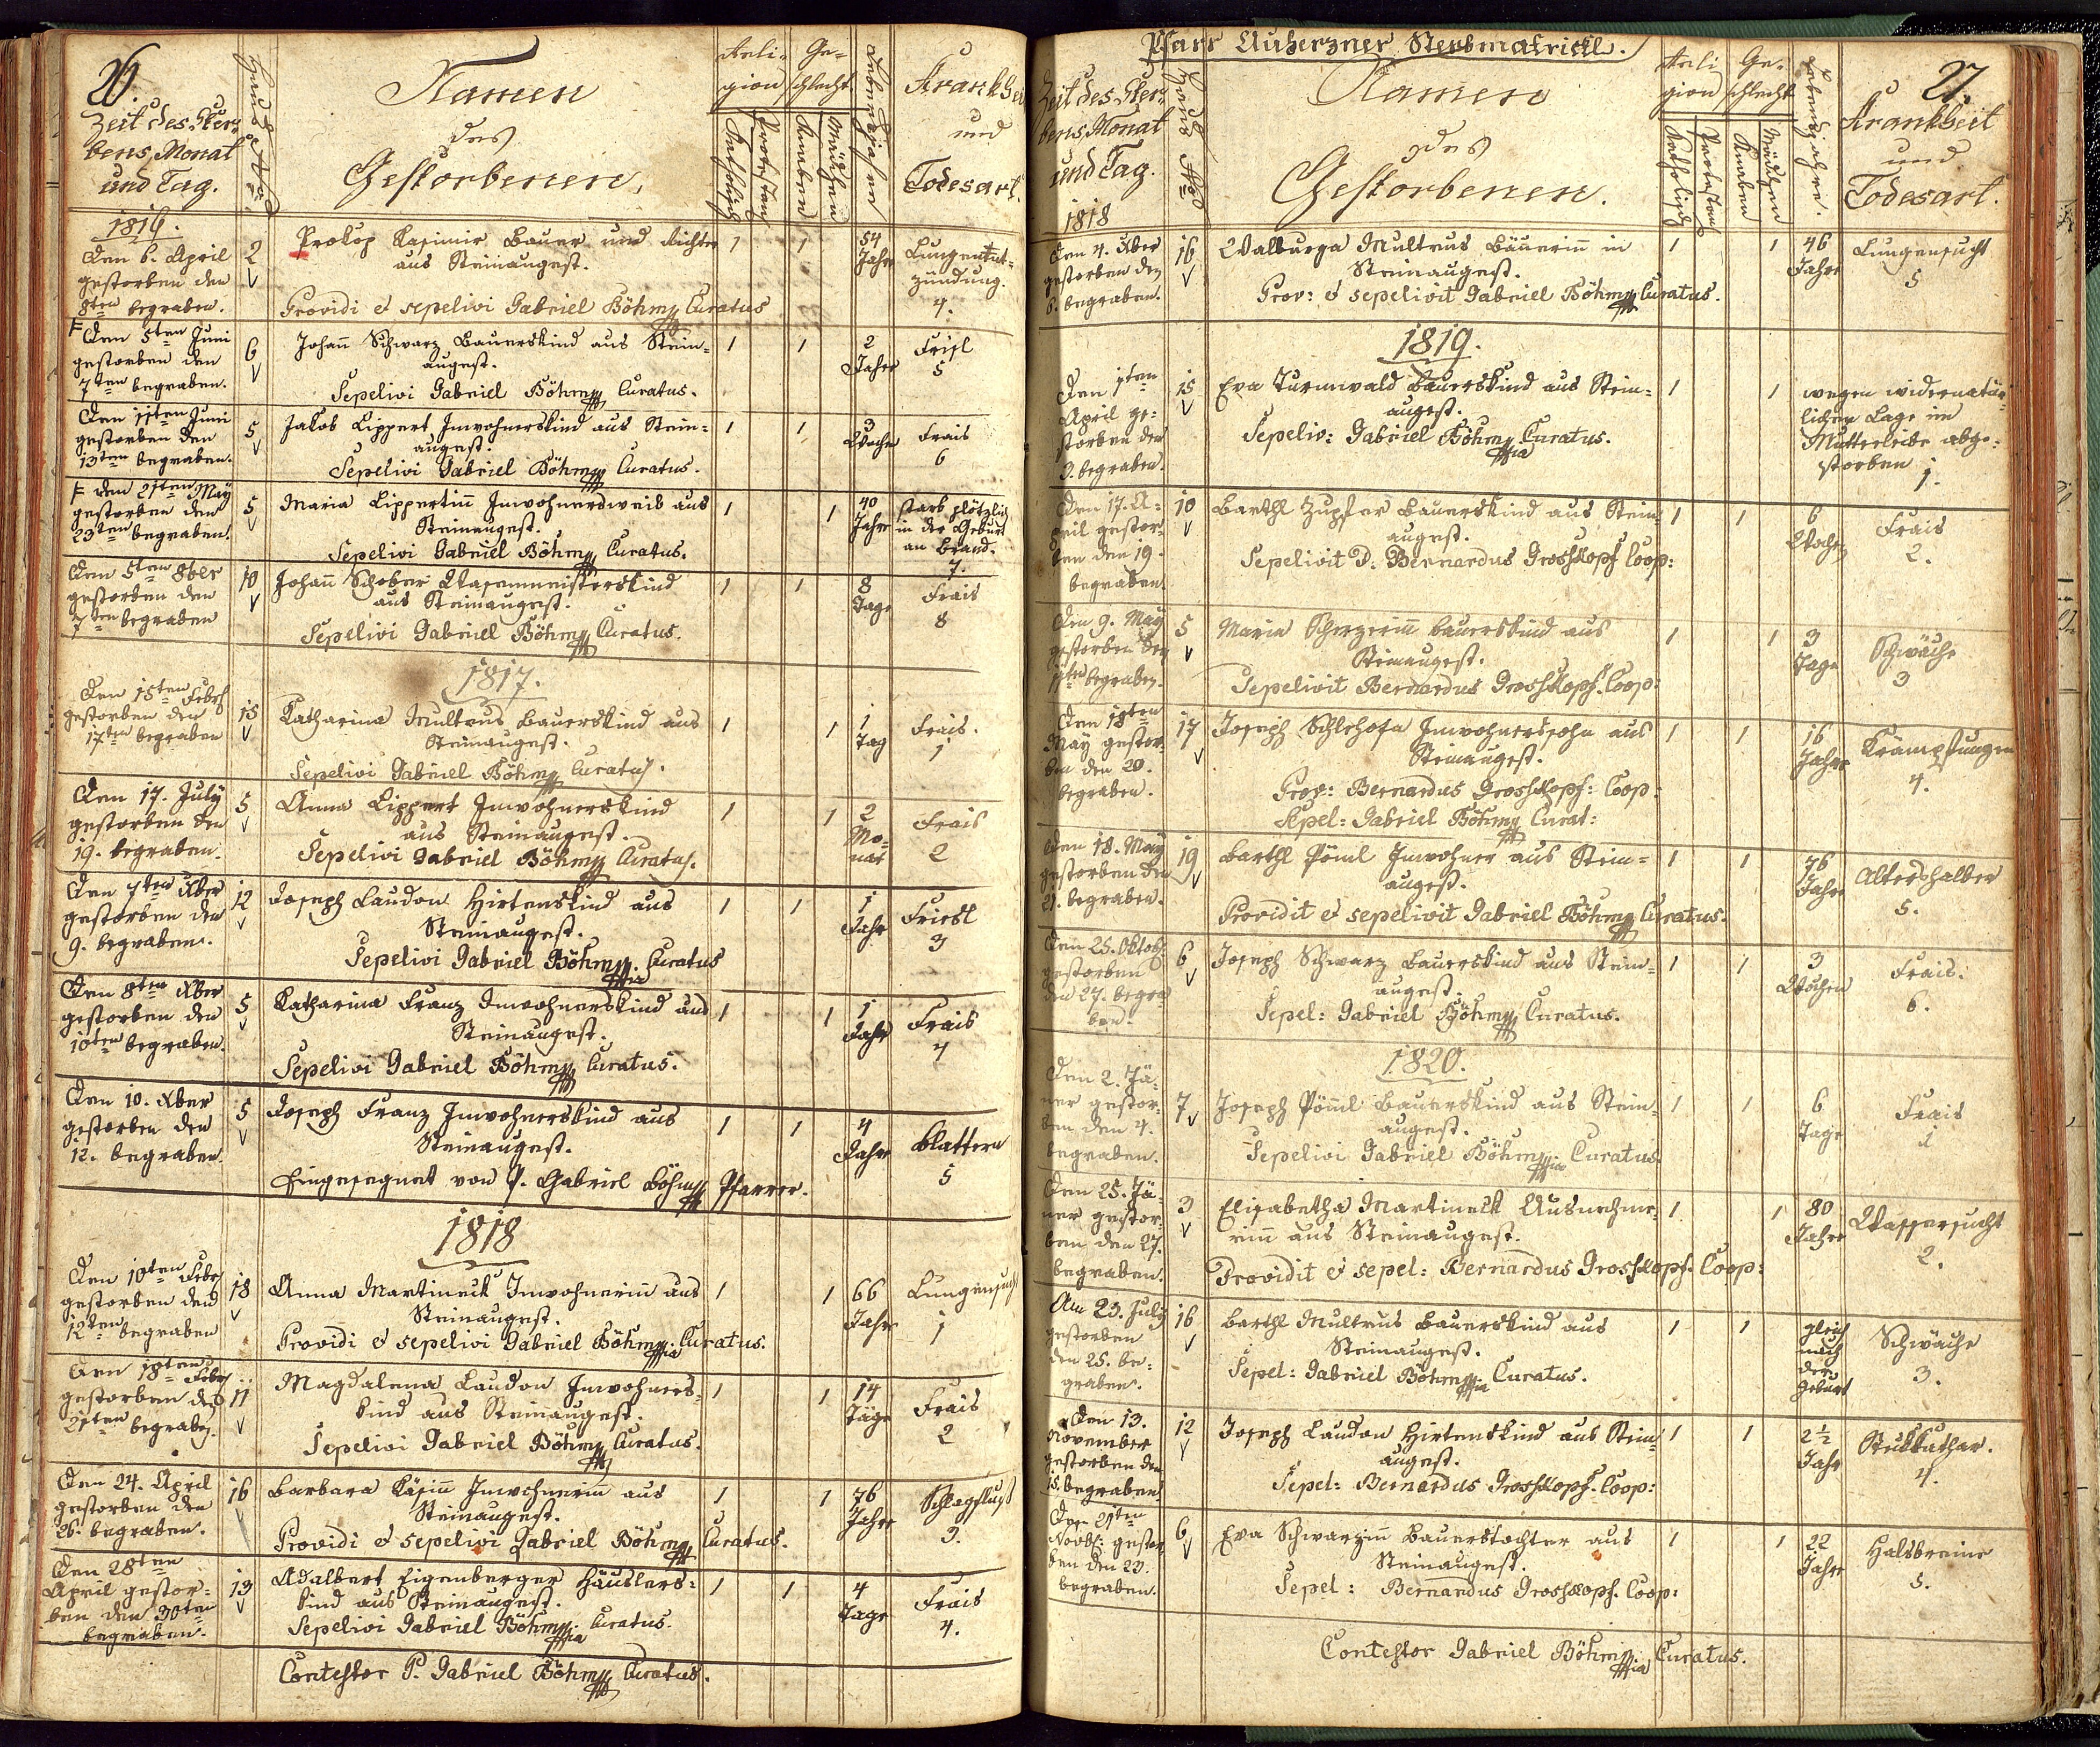 26.
Zeit des Ster-
bens, Monat
und Tag.
Haus Nro
Namen
des
Gestorbenen.
Reli-
gion
Katholisch
Protestan
Ge-
schlecht
Knaben
Mädchen
Lebensjahre
Krankheit
und
Todesart.
1816.
Den 6. April
gestorben den
8ten begraben.
2
Prokop Kasimir Bauer und Richter
aus Steinaugest.
Providi et sepelivi Gabriel Böhm Curatus
1 1
54
Jahre
Lungenent-
zündung.
4.
Den 5ten Juni
gestorben den
7ten begraben.
6
Johann Schwarz Bauerskind aus Stein-
augest.
Sepelivi Gabriel Böhm Curatus.
1 1
2
Jahre
Frisl
5
Den 11ten Juni
gestorben den
13ten begraben.
5
Jakob Lippert Inwohnerskind aus Stein-
augest.
Sepelivi Gabriel Böhm Curatus.
1 1
3
Wochen
Frais
6
Den 21ten May
gestorben den
23ten begraben.
5
Maria Lippertinn Inwohnersweib aus
Steinaugest.
Sepelivi Gabriel Böhm Curatus.
1 1
40
Jahre
starb plötzlich
in der Geburt
an Brand.
7.
Den 5ten 8ber
gestorben den
7ten begraben
10
Johann Schober Wasenmeisterskind
aus Steinaugest.
Sepelivi Gabriel Böhm Curatus.
1 1
8
Tage
Frais
8
1817.
Den 15ten Febr
gestorben den
17ten begraben
15
Katharina Multrus Bauerskind aus
Steinaugest.
Sepelivi Gabriel Böhm Curatus.
1 1
1
Tag
Frais.
1
Den 17. July
gestorben den
19. begraben.
5
Anna Lippert Inwohnerskind
aus Steinaugest.
Sepelivi Gabriel Böhm Curatus.
1 1
2
Mo-
nat
Frais
2
Den 7ten Xber
gestorben den
9. begraben.
12
Joseph Laudon Hirtenskind aus
Steinaugest.
Sepelivi Gabriel Böhm Curatus
1 1
1
Jahr
Friesl
3
Den 8ten Xber
gestorben den
10ten begraben.
5
Katharina Franz Inwohnerskind aus
Steinaugest.
Sepelivi Gabriel Böhm Curatus.
1 1
1
Jahr
Frais
4
Den 10. Xber
gestorben den
12. begraben.
5
Joseph Franz Inwohnerskind aus
Steinaugest.
Eingesegnet von P. Gabriel Böhm Pfarrer.
1 1
4
Jahr
Blattern
5
1818
Den 10ten Febr
gestorben den
12ten begraben
18
Anna Martineck Inwohnerin aus
Steinaugest.
Providi et sepelivi Gabriel Böhm Curatus.
1 1
66
Jahre
Lungensucht
1
Den 18ten Febr
gestorben den
21ten begraben.
11
Magdalena Laudon Inwohners-
kind aus Steinaugest.
Sepelivi Gabriel Böhm Curatus.
1 1
14
Täge
Frais
2
Den 24. April
gestorben den
26. begraben.
16
Barbara Käsinn Inwohnerinn aus
Steinaugest.
Providi et sepelivi Gabriel Böhm Curatus.
1 1
76
Jahre
Schlagfluß
3.
Den 28ten
April gestor-
ben den 30ten
begraben.
13
Adalbert Eigenberger Häuslers-
kind aus Steinaugest.
Sepelivi Gabriel Böhm Curatus.
1 1
4
Tage
Frais
4.
Contestor P. Gabriel Böhm Curatus.
Pfarr Auherzner Sterbmatrickl.
27.
Zeit des Ster-
bens, Monat
und Tag.
Haus Nro
Namen
des
Gestorbenen.
Reli
gion
Katholisch
Protestan
Ge-
schlecht
Knaben
Mädchen
Lebensjahre.
Krankheit
und
Todesart.
1818
Den 4. Xber
gestorben den
6. begraben.
16
Walburga Multrus Bäuerinn in
Steinaugest.
Prov: et sepelivit Gabriel Böhm Curatus.
1 1
46
Jahre
Lungensucht
5
1819.
Den 1ten
April ge-
storben den
3. begraben.
15
Eva Turnwald Bauerskind aus Stein-
augest.
Sepeliv: Gabriel Böhm Curatus.
1 1
wegen widernatür-
lichen Lage im
Mutterleibe abge-
storben
1.
Den 17. A-
pril gestor-
ben den 19.
begraben.
10
Barthl Zupfer Bauerskind aus Stein-
augest.
Sepelivit D. Bernardus Grosskopf Coop:
1 1
6
Wochen
Frais
2.
Den 9. May
gestorben den
11ten begraben.
5
Maria Scherzerinn Bauerskind aus
Steinaugest.
Sepelivit Bernardus Grosskopf. Coop:
1 1
3
Tage
Schwäche
3
Den 18ten
May gestor-
ben den 20.
begraben.
17
Joseph Schlehofer Inwohnerssohn aus
Steinaugest.
Prov: Bernardus Grosskopf: Coop:
Sepel: Gabriel Böhm Curat:
1 1
16
Jahre
Krämpfungen
4.
Den 18. May
gestorben den
21. begraben.
19
Barthl Pöml Inwohner aus Stein-
augest.
Providit et sepelivit Gabriel Böhm Curatus.
1 1
76
Jahre
Altershalber
5.
Den 25. Oktob.
gestorben
den 27. begra
ben.
6
Joseph Schwarz Bauerskind aus Stein-
augest.
Sepel: Gabriel Böhm Curatus.
1 1
3
Wochen
Frais.
6.
1820.
Den 2. Jä-
ner gestor-
ben den 4.
begraben.
7
Joseph Pöml Bauerskind aus Stein-
augest.
Sepelivi Gabriel Böhm Curatus.
1 1
6
Tage
Frais
1
Den 25. Jä-
ner gestor-
ben den 27.
begraben.
3
Elisabetha Martineck Ausnehme-
rinn aus Steinaugest.
Providit et sepel: Bernardus Grosskopf. Coop:
1 1
80
Jahre
Wassersucht
2.
Am 23. July
gestorben
den 25. be-
graben.
16
Barthl Multrus Bauerskind aus
Steinaugest.
Sepel: Gabriel Böhm Curatus.
1 1
gleich
nach
der
Geburt
Schwäche
3.
Den 13.
November
gestorben den
15. begraben.
12
Joseph Laudon Hirtenskind aus Stein-
augest.
Sepel: Bernardus Grosskopf. Coop:
1 1
2½
Jahr
Stickkathar.
4.
Den 21ten
Novbr: gestor
ben den 23.
begraben.
6
Eva Schwarzinn Bauerstochter aus
Steinaugest.
Sepel: Bernardus Grosskopf. Coop:
1 1
22
Jahre
Halsbreine
5.
Contestor Gabriel Böhm Curatus.